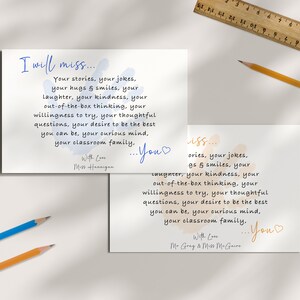 I will miss...
Your stories, your jokes,
your hugs & smiles, your
laughter, your kindness, your
out-of-the-box thinking, your
willingness to try, your thoughtful
questions, your desire to be the best
you can be, your curious mind,
your classroom family.
...You♡
With Love
Miss Hannigan
miss...
ries, your jokes,
& smiles, your
your kindness, your
out-of-the-box thinking, your
willingness to try, your thoughtful
questions, your desire to be the best
you can be, your curious mind,
your classroom family.
...You♡
With Love